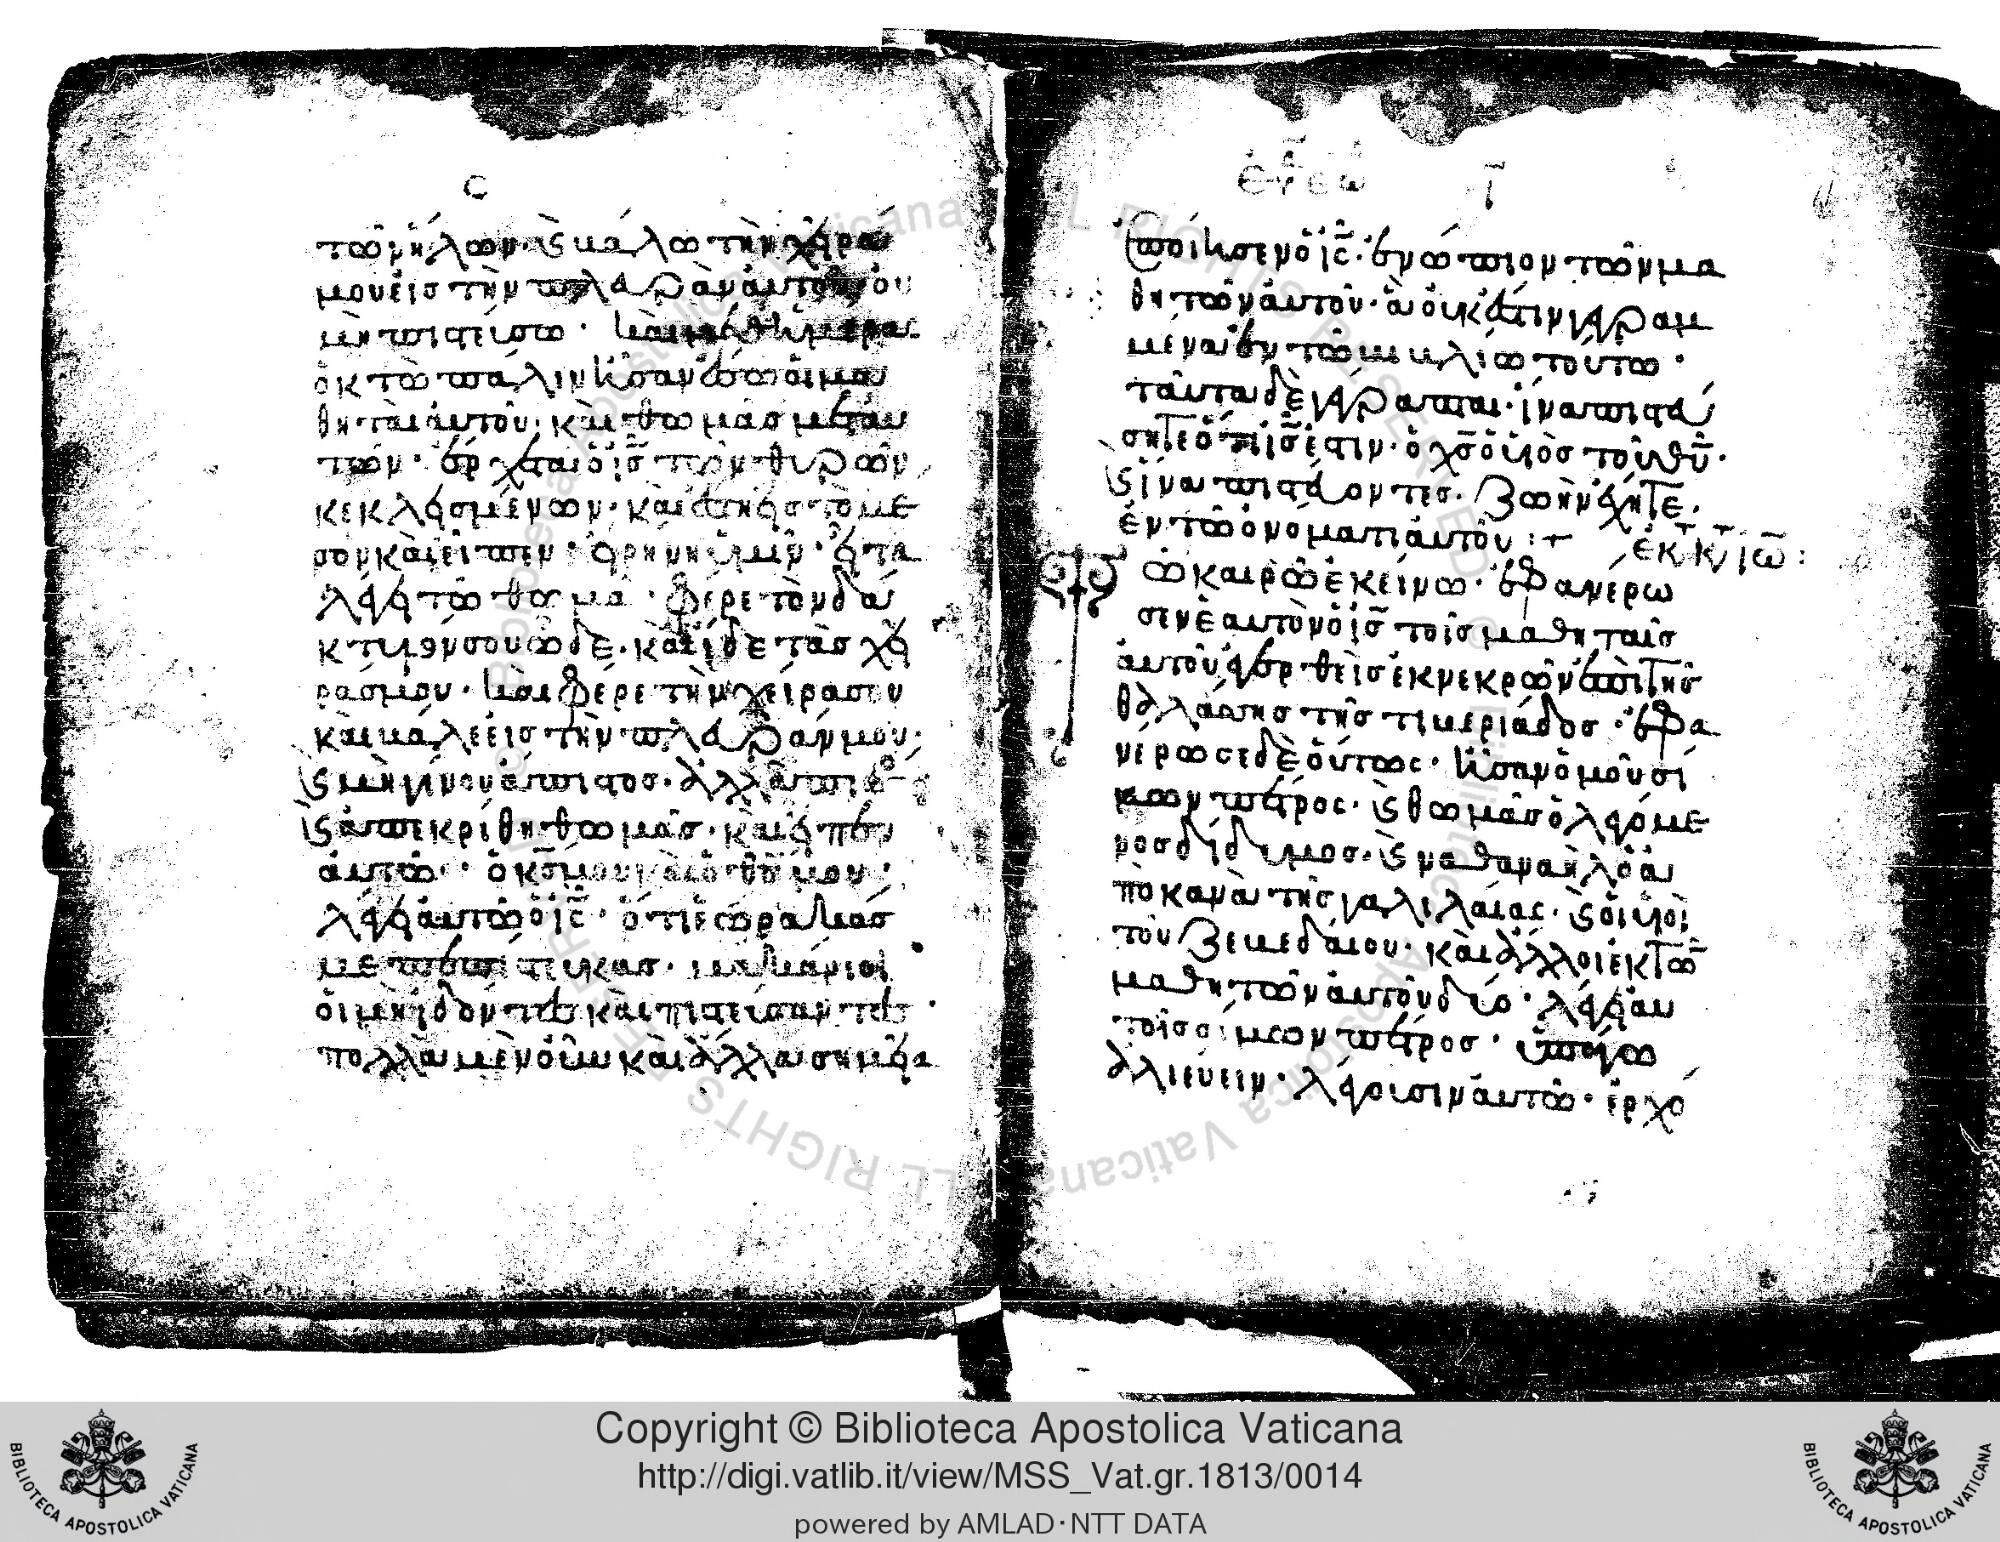 ς
τῶν ἥλων· ϛ βάλω τὴν χεῖρά
μου εἰς τὴν πλευρὰν αὐτοῦ οὐ
μὴ πιστεύσω· καὶ μεθ' ἡμέρας
ὀκτὼ πάλιν ἦσαν ἔσω οἱ μα
θηταὶ αὐτοῦ· καὶ θωμᾶς μετ' αὐ
τῶν· ἔρχεται ὁ ις τῶν θυρῶν
κεκλεισμένων· καὶ ἔστη εἰς τὸ μέ
σον καὶ εἶπεν· εἰρήνη ὑμῖν· εἶτα
λέγει τῶ θωμᾶ· φέρε τὸν δά
κτυλόν σου ὧδε· καὶ ἴδε τὰς χεῖ
ράς μου· καὶ φέρε τὴν χεῖρά σου
καὶ βάλε εἰς τὴν πλευράν μου·
ϛ μὴ γίνου ἄπιστος· ἀλλὰ πιστός
ϛ ἀπεκρίθη θωμᾶς· καὶ εἶπεν
αὐτῶ· ὁ κς μου καὶ ὁ θς μου·
λέγει αὐτῶ ὁ ις· ὅτι ἑώρακάς
με πεπίστευκας· μακάριοι
οἱ μὴ ἰδόντες καὶ πιστεύσαντες·
πολλὰ μὲν οὖν καὶ ἄλλα σημεῖα
ἐποίησεν ὁ ις· ἐνώπιον τῶν μα
θητῶν αὐτοῦ· ἃ οὐκ ἔστιν γεγραμ
μένα ἐν τῶ βιβλίω τούτω·
ταῦτα δὲ γέγραπται· ἵνα πιστεύ
σητε ὅτι ις ἐστιν· ὁ χς ὁ υἱὸς τοῦ θυ·
ϛ ἵνα πιστεύοντες· ζωὴν ἔχητε·
ἐν τῶ ὀνόματι αὐτοῦ :+ ἐκ τ κτ ιω :
Τῶ καιρῶ ἐκείνω· ἐφανέρω
σεν ἑαυτὸν ὁ ις τοῖς μαθηταῖς
αὐτοῦ ἐγερθεὶς ἐκ νεκρῶν ἐπὶ τῆς
θαλάσσης τῆς τιβεριάδος· ἐφα
νέρωσε δὲ οὕτως· ἦσαν ὁμοῦ σί
μων πέτρος· ϛ θωμᾶς ὁ λεγόμε
νος δίδυμος· ϛ ναθαναὴλ ὁ ἀ
πὸ κανὰ τῆς γαλιλαίας· ϛ οἱ υἱοὶ
τοῦ ζεβεδαίου· καὶ ἄλλοι ἐκ τῶν
μαθητῶν αὐτοῦ δύο· λέγει αὐ
τοῖς σίμων πέτρος· ὑπάγω
ἁλιεύειν· λέγουσιν αὐτῶ· ἐρχό
Copyright © Biblioteca Apostolica Vaticana
http://digi.vatlib.it/view/MSS_Vat.gr.1813/0014
powered by AMLAD·NTT DATA
BIBLIOTECA APOSTOLICA VATICANA
BIBLIOTECA APOSTOLICA VATICANA